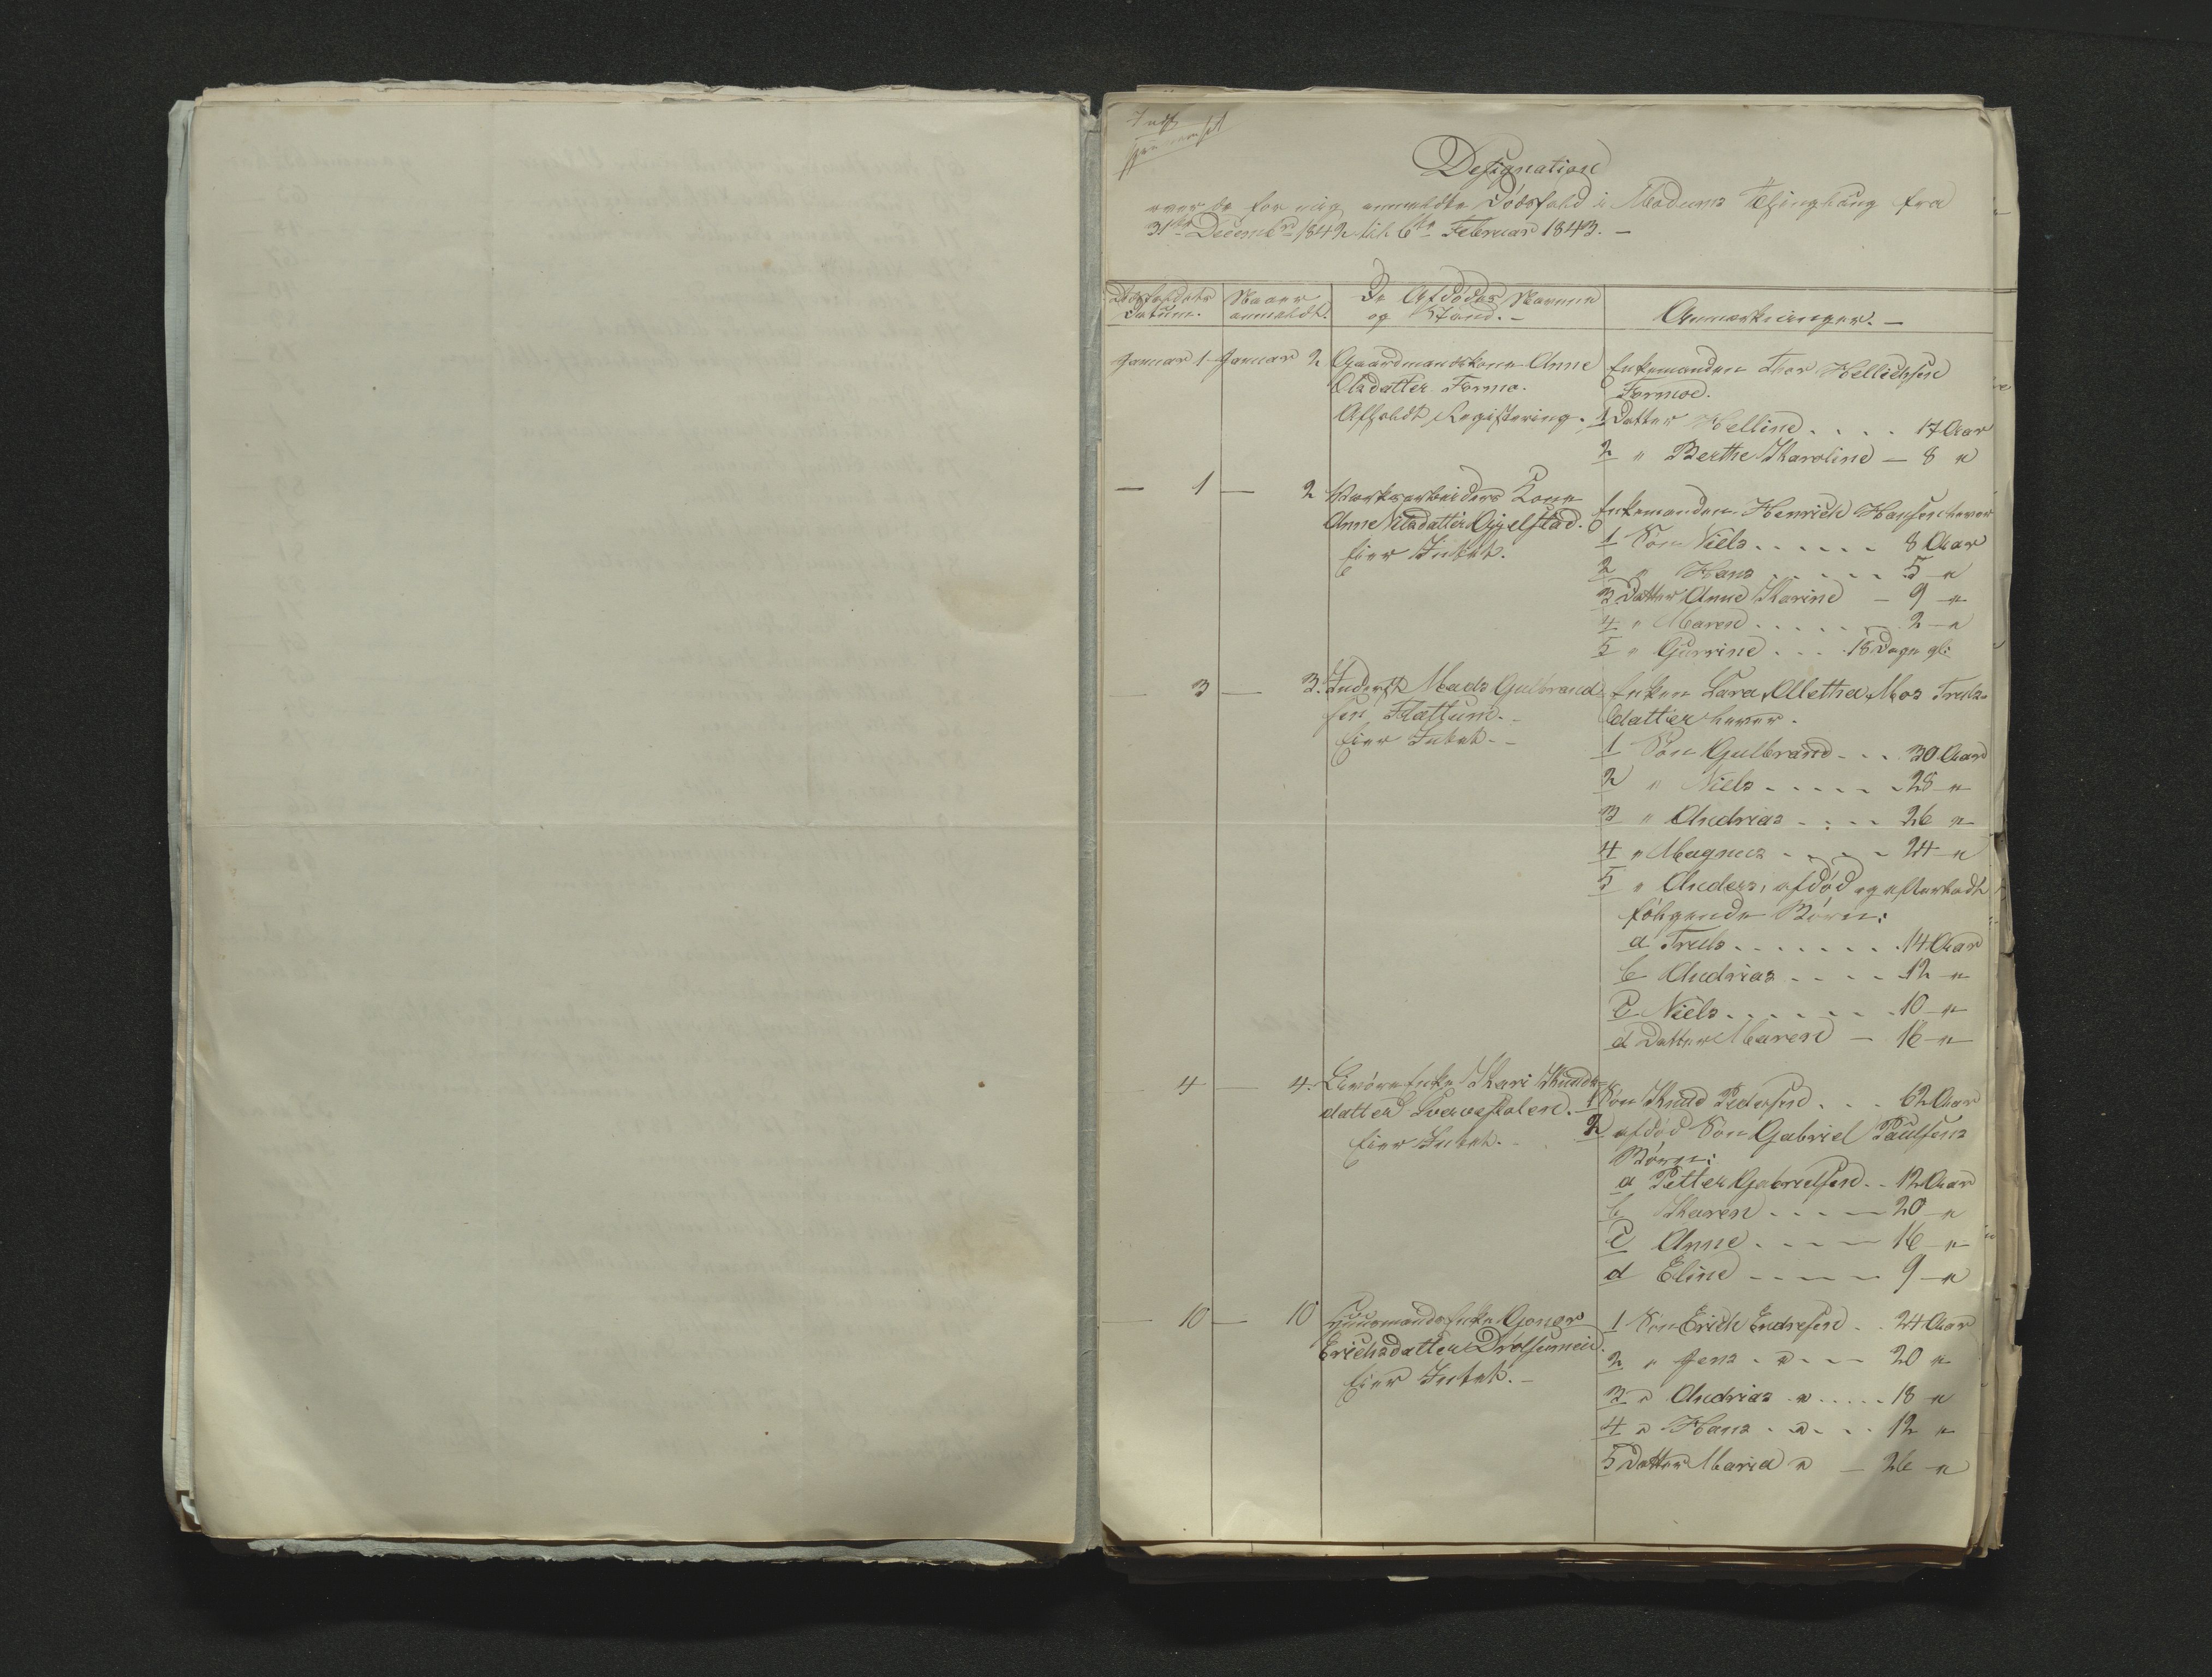 Designation
over de for mig anmeldte Dödsfald i Modums Thinglaug fra
31te Decembr 1842 til 6te Februar 1843. —
Dödsfaldets Datum.
Naar anmeldt.
De Afdödes Navne og Stand. —
Anmærkninger. —
Januar 1 Januar 2 Gaardmandskone Anne
Olsdatter Formo.
Afholdt Registering.
Enkemanden Thor Hellichsen
Formoe.
1 Datter Helline . . . . 17 Aar
2 " Berthe Karoline — 8 "
— 1 — 2 Værksarbeiders Kone
Anne Nilsdatter Gjelstad.
Eier Intet.
Enkemanden Henrich Hansen haver
1 Sön Niels . . . . . . 8 Aar
2 " Hans . . . . . . 5 "
3 Datter Anne Karine — 9 "
4 " Maren . . . . . . 2 "
5 " Gurrine . . . 18 Dage gl:
— 3 — 3. Inderst Mads Gulbrand
sen Flattum. —
Eier Intet. —
Enken Lara Alletha Moe Truls-
datter haver.
1 Sön Gulbrand - - . 30 Aar
2 " Niels - - - - - - 28 "
3 " Andrias - - - - 26 "
4 " Magnus - - - - 24 "
5 " Anders, afdöd og efterladt
fölgende Börn:
a Truls . . . . . . . 14 Aar
b Andrias - - - - 12 "
c Niels . . . . . . . 10 "
d Datter Maren — 16 "
— 4 — 4. Enke Kari Knuds-
datter
Eier Intet. -
1 Sön Knud Pedersen . . . 62 Aar
2 afdöd Sön Gabriel Paulsens
Börn:
a Petter Gabrielsen - - 12 Aar
b Karen - - - - 20 "
c Anne - - - - 16 "
d Eline - - - - - 9 "
— 10 — 10 Huusmands Enke Goner
Erichsdatter Drolsumeie.
Eier Intet. —
1 Sön Erich Endresen . . 24 Aar
2 " Jens - " - - - 20 "
3 " Andrias - " . . . . . 18 "
4 " Hans . " . - . . 12 "
5 Datter Maria " — 26 "